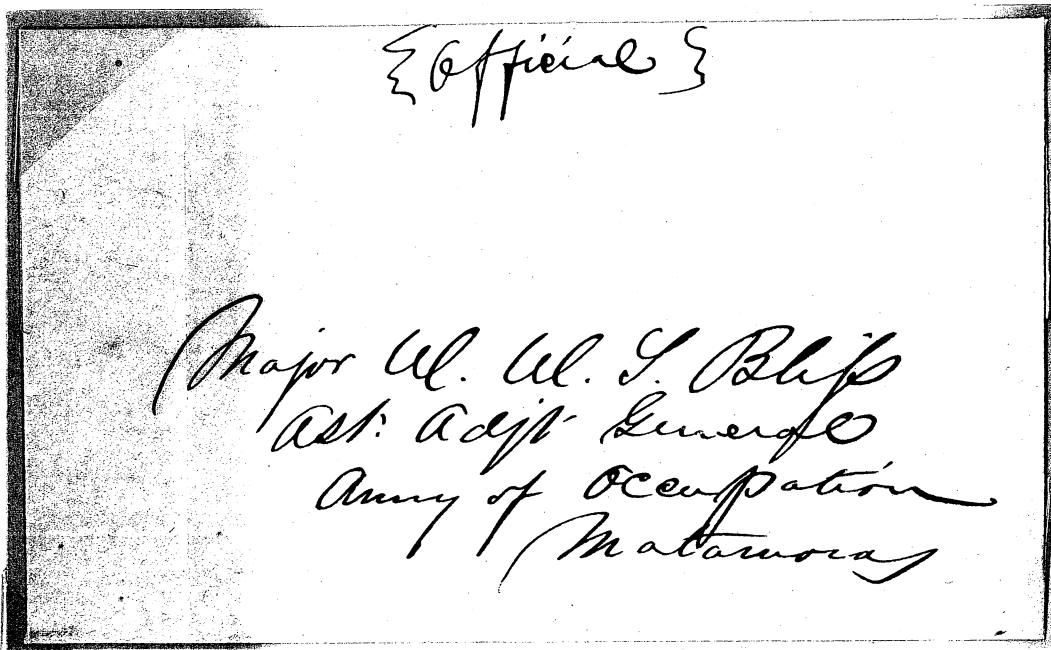 {Official}
Major W. W. S. Bliss
Asst. Adjt. General
Army of Occupation
Matamoras